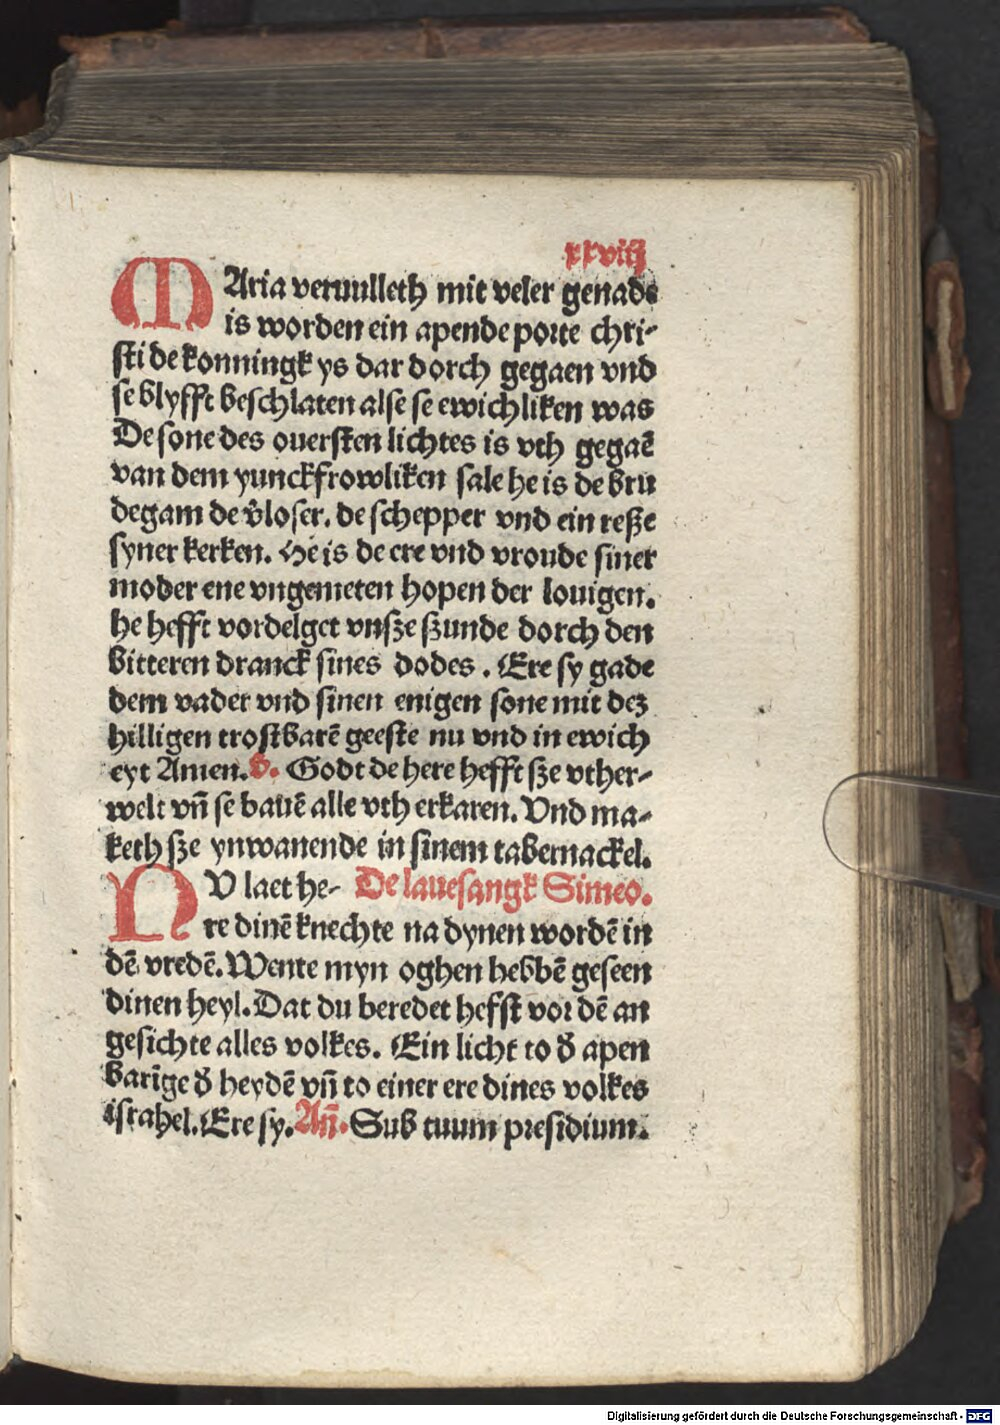 xxviij
MAria veruulleth mit veler genade
is worden ein apende porte chri-
sti de konningk ys dar dorch gegaen vnd
se blyfft beschlaten alse se ewichliken was
De sone des ouersten lichtes is vth gegaē
van dem yunckfrowliken sale he is de bru
degam de v̄loser. de schepper vnd ein reße
syner kerken. He is de ere vnd vroude siner
moder ene vngemeten hopen der louigen.
he hefft vordelget vnsze szunde dorch den
bitteren dranck sines dodes. Ere sy gade
dem vader vnd sinen enigen sone mit dez
hilligen trostbarē geeste nu vnd in ewich
eyt Amen. v. Godt de here hefft sze vther-
welt vn̄ se bauē alle vth erkaren. Vnd ma-
keth sze ynwanende in sinem tabernackel.
NV laet he- De lauesangk Simeo.
re dinē knechte na dynen wordē in
dē vredē. Wente myn oghen hebbē geseen
dinen heyl. Dat du beredet hefst vor dē an
gesichte alles volkes. Ein licht to đ apen
barīge đ heydē vn̄ to einer ere dines volkes
israhel. Ere sy. An̄. Sub tuum presidium.
Digitalisierung gefördert durch die Deutsche Forschungsgemeinschaft - DFG